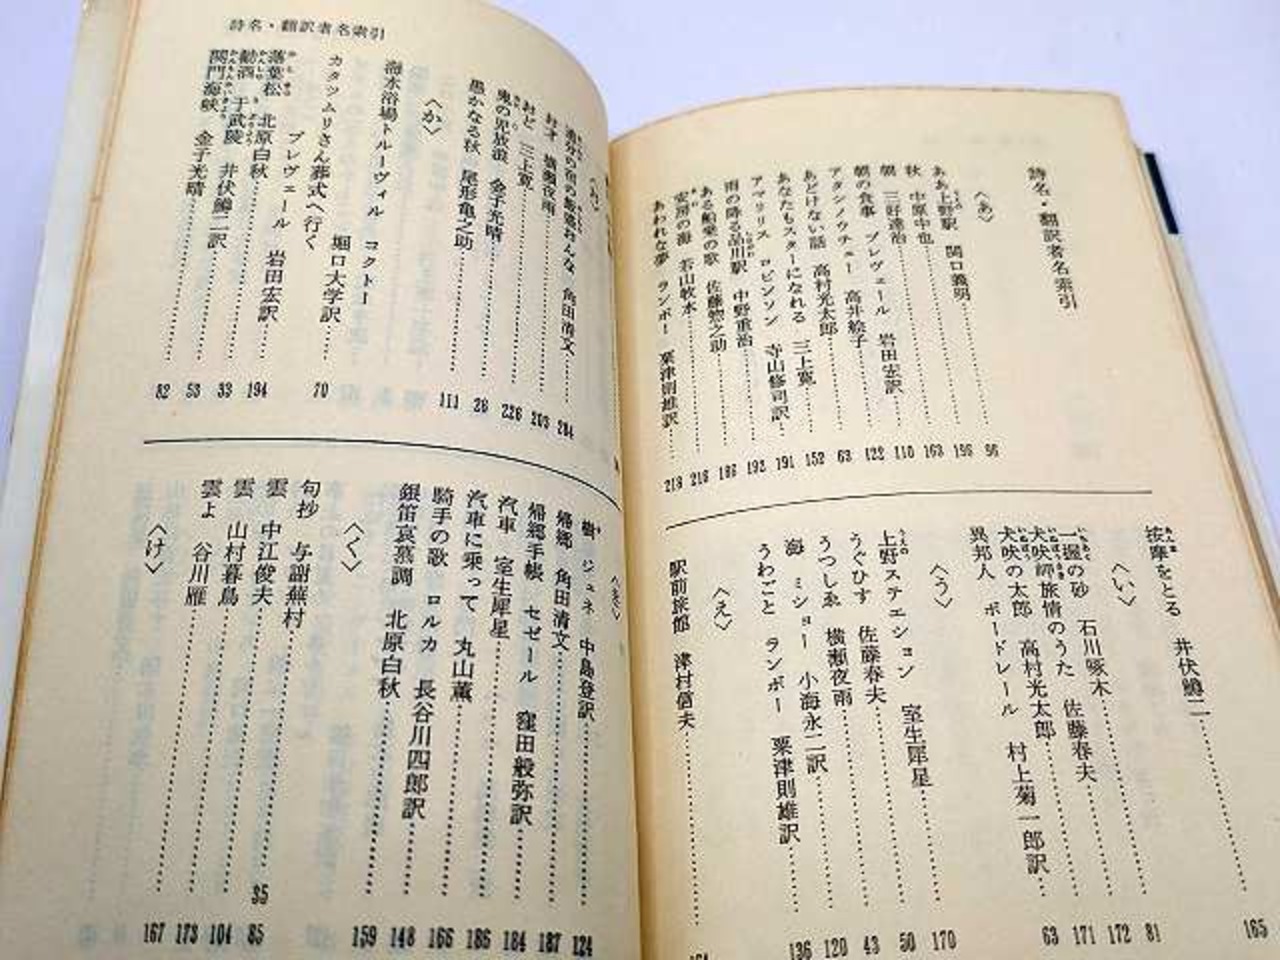 詩名・翻訳者名索引
〈あ〉
ああ上野駅 関口義明 96
秋 中原中也 196
朝 三好達治 163
朝の食事 プレヴェール 岩田宏訳 110
アタシノウチュー 高井絵子 122
あどけない話 高村光太郎 63
あなたもスターになれる 三上寛 152
アマリリス ロビンソン 寺山修司訳 191
雨の降る品川駅 中野重治 192
ある船乗の歌 佐藤惣之助 186
安房の海 若山牧水 216
あわれな夢 ランボー 粟津則雄訳 219
按摩をとる 井伏鱒二 165
〈い〉
一握の砂 石川啄木 81
犬吠師旅情のうた 佐藤春夫 172
犬吠の太郎 高村光太郎 171
異邦人 ボードレール 村上菊一郎訳 63
〈う〉
上野ステエション 室生犀星 170
うぐひす 佐藤春夫 50
うつしゑ 横瀬夜雨 43
海 ミショー 小海永二訳 120
うわごと ランボー 粟津則雄訳 136
〈え〉
駅前旅館 津村信夫
詩名・翻訳者名索引
〈お〉
追分の宿の飯盛おんな 角田清文 204
お才 横瀬夜雨 203
おど 三上寛 226
鬼の児放浪 金子光晴 26
愚かなる秋 尾形亀之助 111
〈か〉
海水浴場トルーヴィル コクトー
堀口大学訳 70
カタツムリさん葬式へ行く
プレヴェール 岩田宏訳 194
落葉松 北原白秋 33
勧酒 于武陵 井伏鱒二訳 53
関門海峡 金子光晴 82
〈き〉
樹 ジュネ 中島登訳 124
帰郷 角田清文 187
帰郷手帳 セゼール 窪田般弥訳 184
汽車 室生犀星 186
汽車に乗って 丸山薫 166
騎手の歌 ロルカ 長谷川四郎訳 148
銀笛哀慕調 北原白秋 159
〈く〉
句抄 与謝蕪村 85
雲 中江俊夫 35 104
雲 山村暮鳥 173
雲よ 谷川雁 167
〈け〉